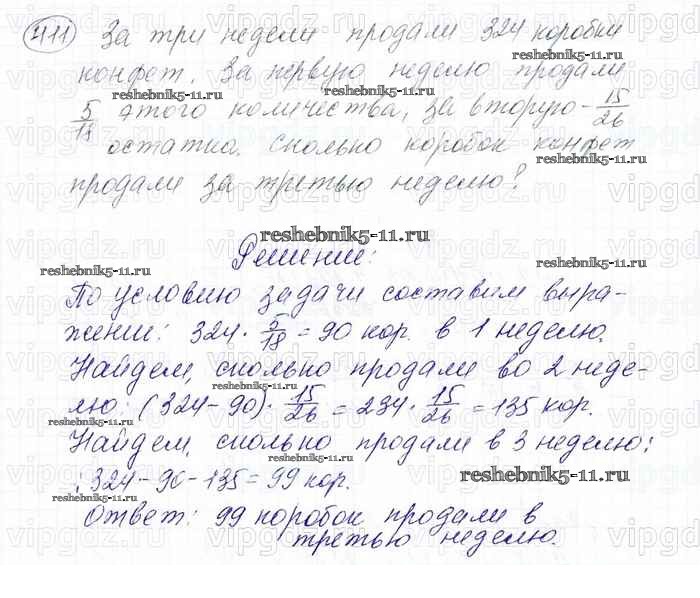 411 За три недели продали 324 коробки
конфет. За первую неделю продали
5/18 этого количества, за вторую - 15/26
остатка. Сколько коробок конфет
продали за третью неделю?
Решение:
По условию задачи составим выра-
жении: 324 · 5/18 = 90 кор. в 1 неделю.
Найдем, сколько продали во 2 неде-
лю: (324 - 90) · 15/26 = 234 · 15/26 = 135 кор.
Найдем, сколько продали в 3 неделю:
: 324 - 90 - 135 = 99 кор.
Ответ: 99 коробок продали в
третью неделю.
reshebnik5-11.ru
reshebnik5-11.ru
reshebnik5-11.ru
reshebnik5-11.ru
reshebnik5-11.ru
reshebnik5-11.ru
reshebnik5-11.ru
reshebnik5-11.ru
reshebnik5-11.ru
reshebnik5-11.ru
reshebnik5-11.ru
reshebnik5-11.ru
vipgdz.ru